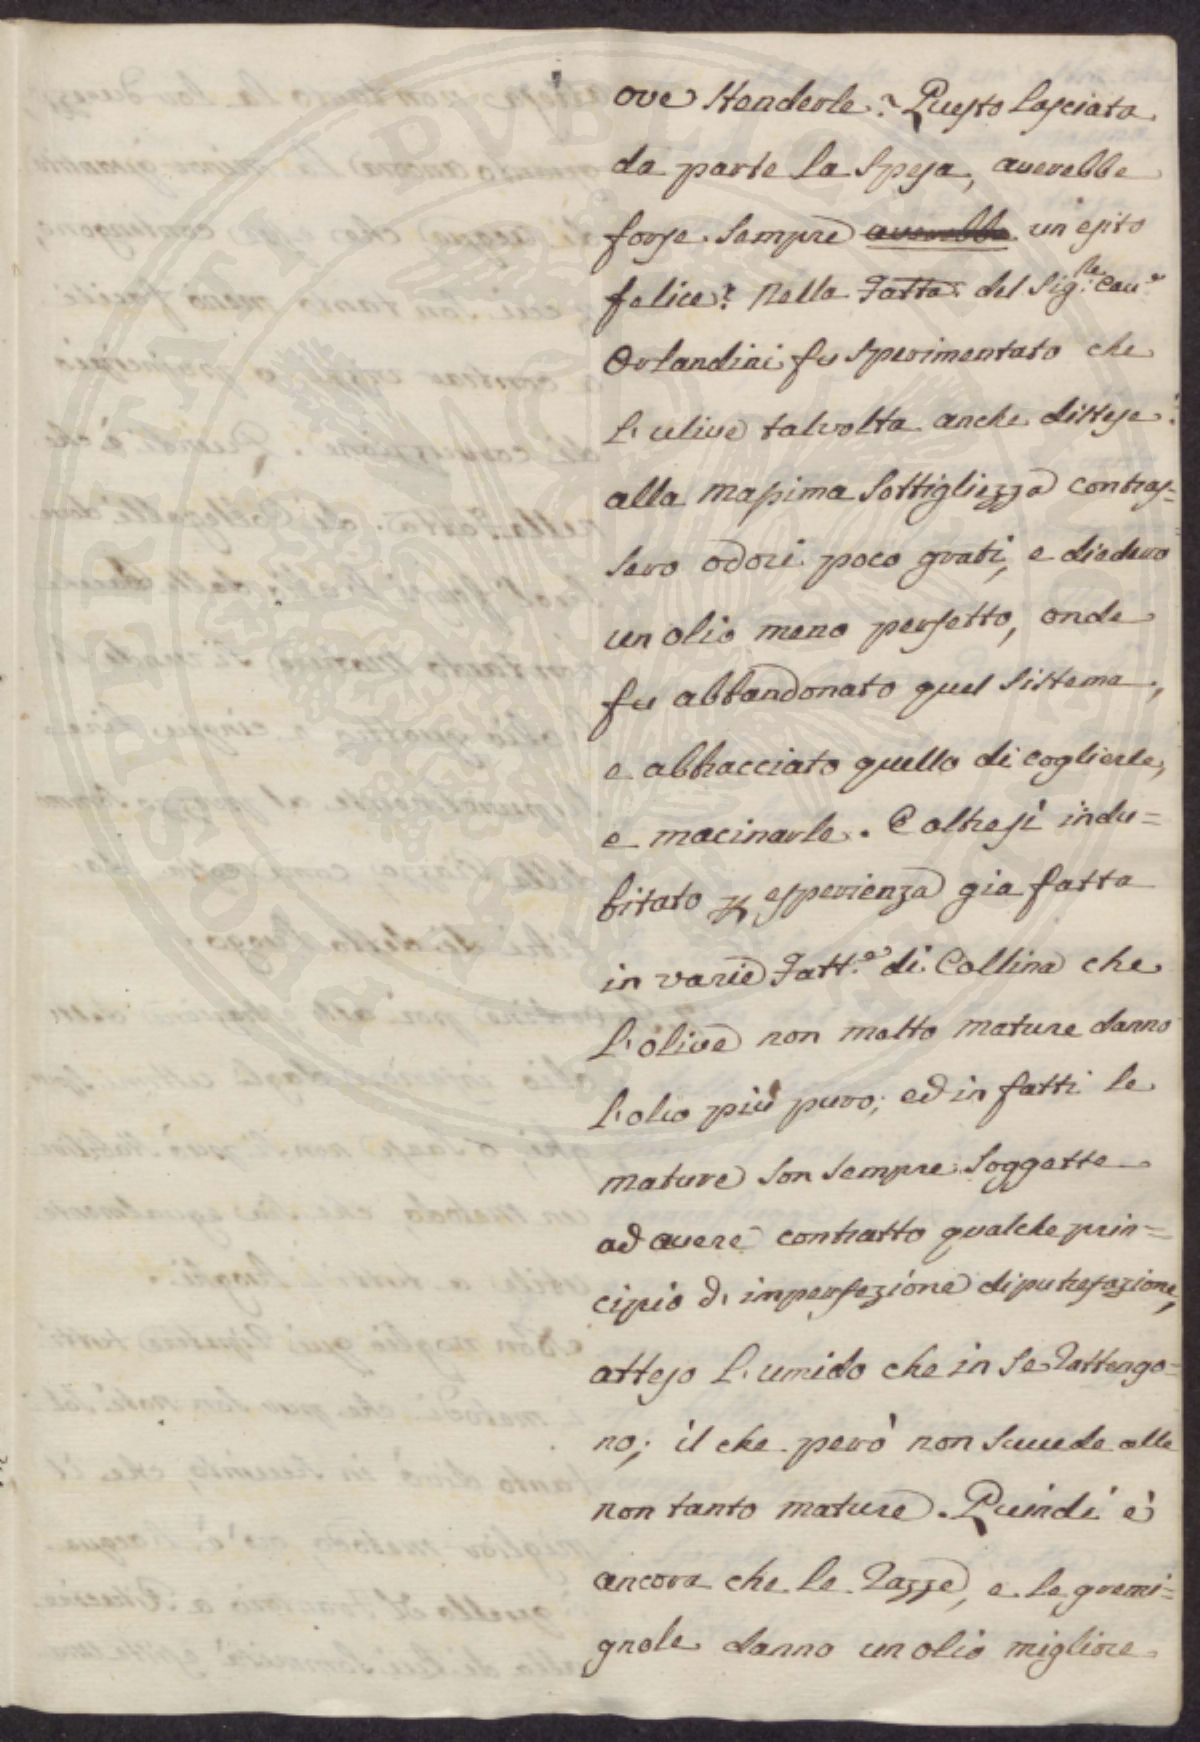 ove stenderle? Questo lasciata
da parte la spesa, averebbe
forse sempre averebbe un'esito
felice? Nella Fatta: del Sig:re Cav:e
Orlandini fu sperimentato che
l'ulive talvolta anche distese
alla massima sottigliezza contras=
sero odori poco grati, e diedero
un olio meno perfetto, onde
fu abbandonato quel sistema,
e abbracciato quello di coglierle,
e macinarle. E altresì indu=
bitato p esperienza gia fatta
in varie Fatt:e di Collina che
l'olive non molto mature danno
l'olio più puro; ed in fatti le
mature son sempre soggette
ad avere contratto qualche prin=
cipio d'imperfezione di putrefazione,
atteso l'umido che in se rattengo=
no; il che però non succede alle
non tanto mature. Quindi è
ancora che le razze, e le gremi=
gnole danno un olio migliore